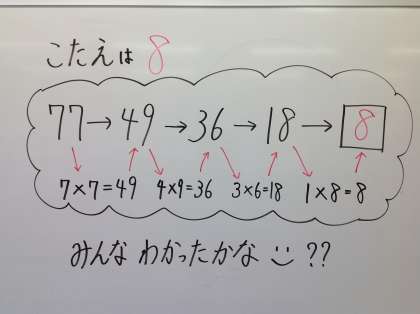 こたえは 8
77→49→36→18→8
7×7=49 4×9=36 3×6=18 1×8=8
みんな わかったかな ??